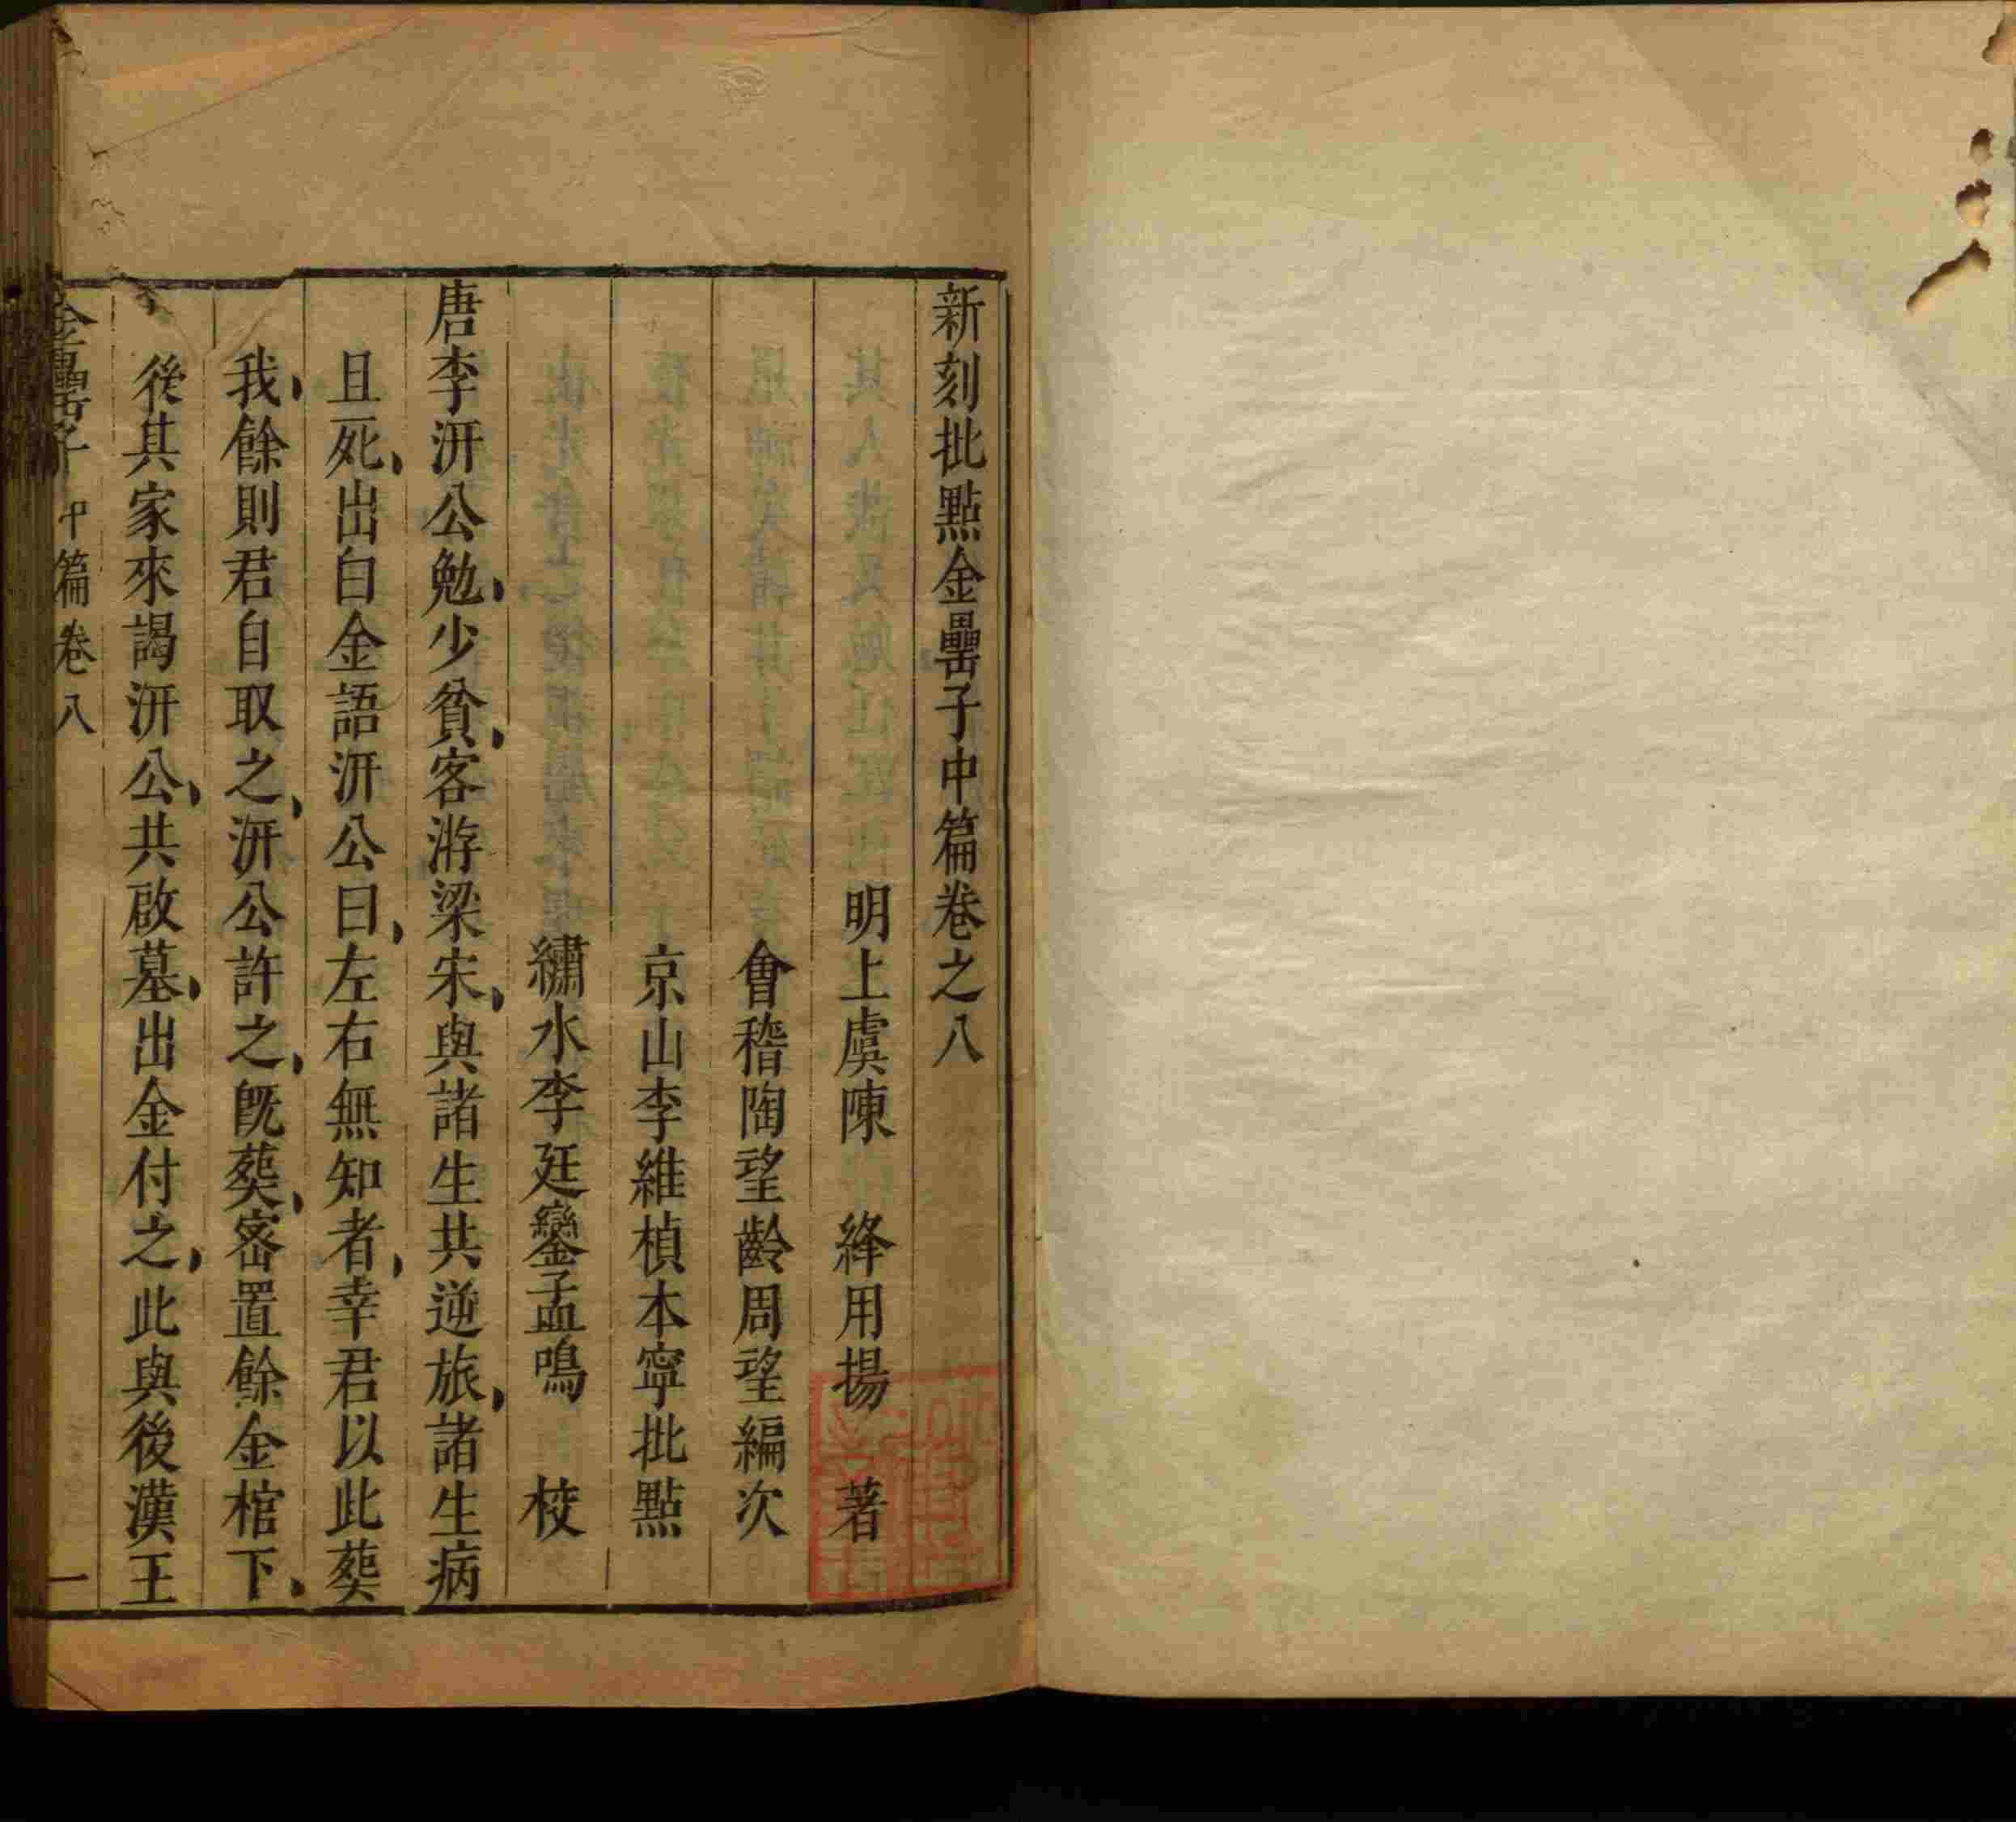 新刻批點金罍子中篇卷之八
明上虞陳 絳用揚 著
會稽陶望齡周望編次
京山李維楨本寧批點
繡水李廷鑾孟鳴 校
唐李汧公勉少貧客游梁宋與諸生共逆旅諸生病
且死出白金語汧公曰左右無知者幸君以此葬
我餘則君自取之汧公許之旣葬密置餘金棺下
後其家來謁汧公共啟墓出金付之此與後漢王
金罍子 中篇卷八 一